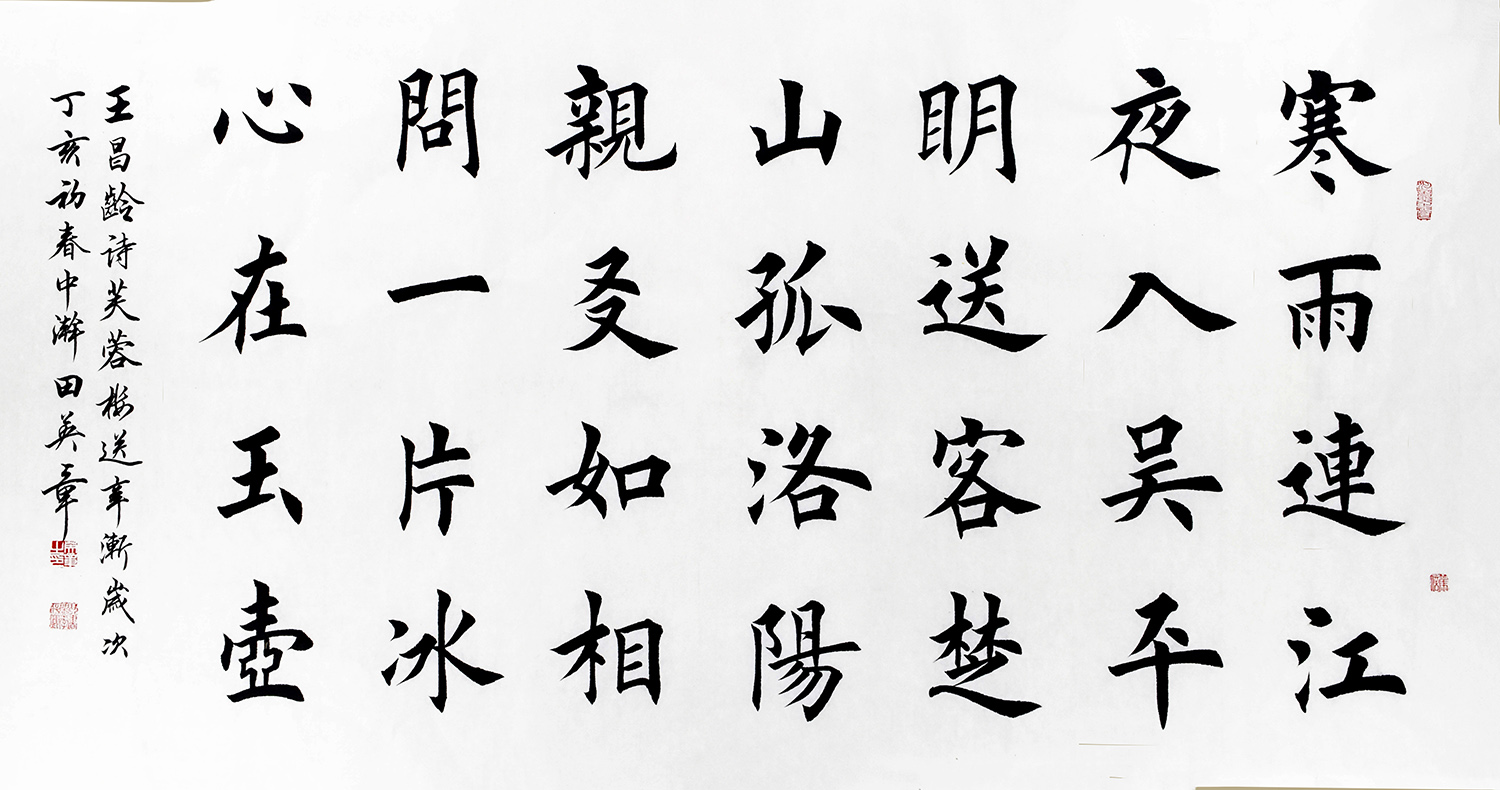 寒雨連江
夜入吴平
明送客楚
山孤洛陽
親友如相
問一片冰
心在玉壺
王昌齡诗芙蓉楼送辛漸歲次
丁亥初春中澣田英章